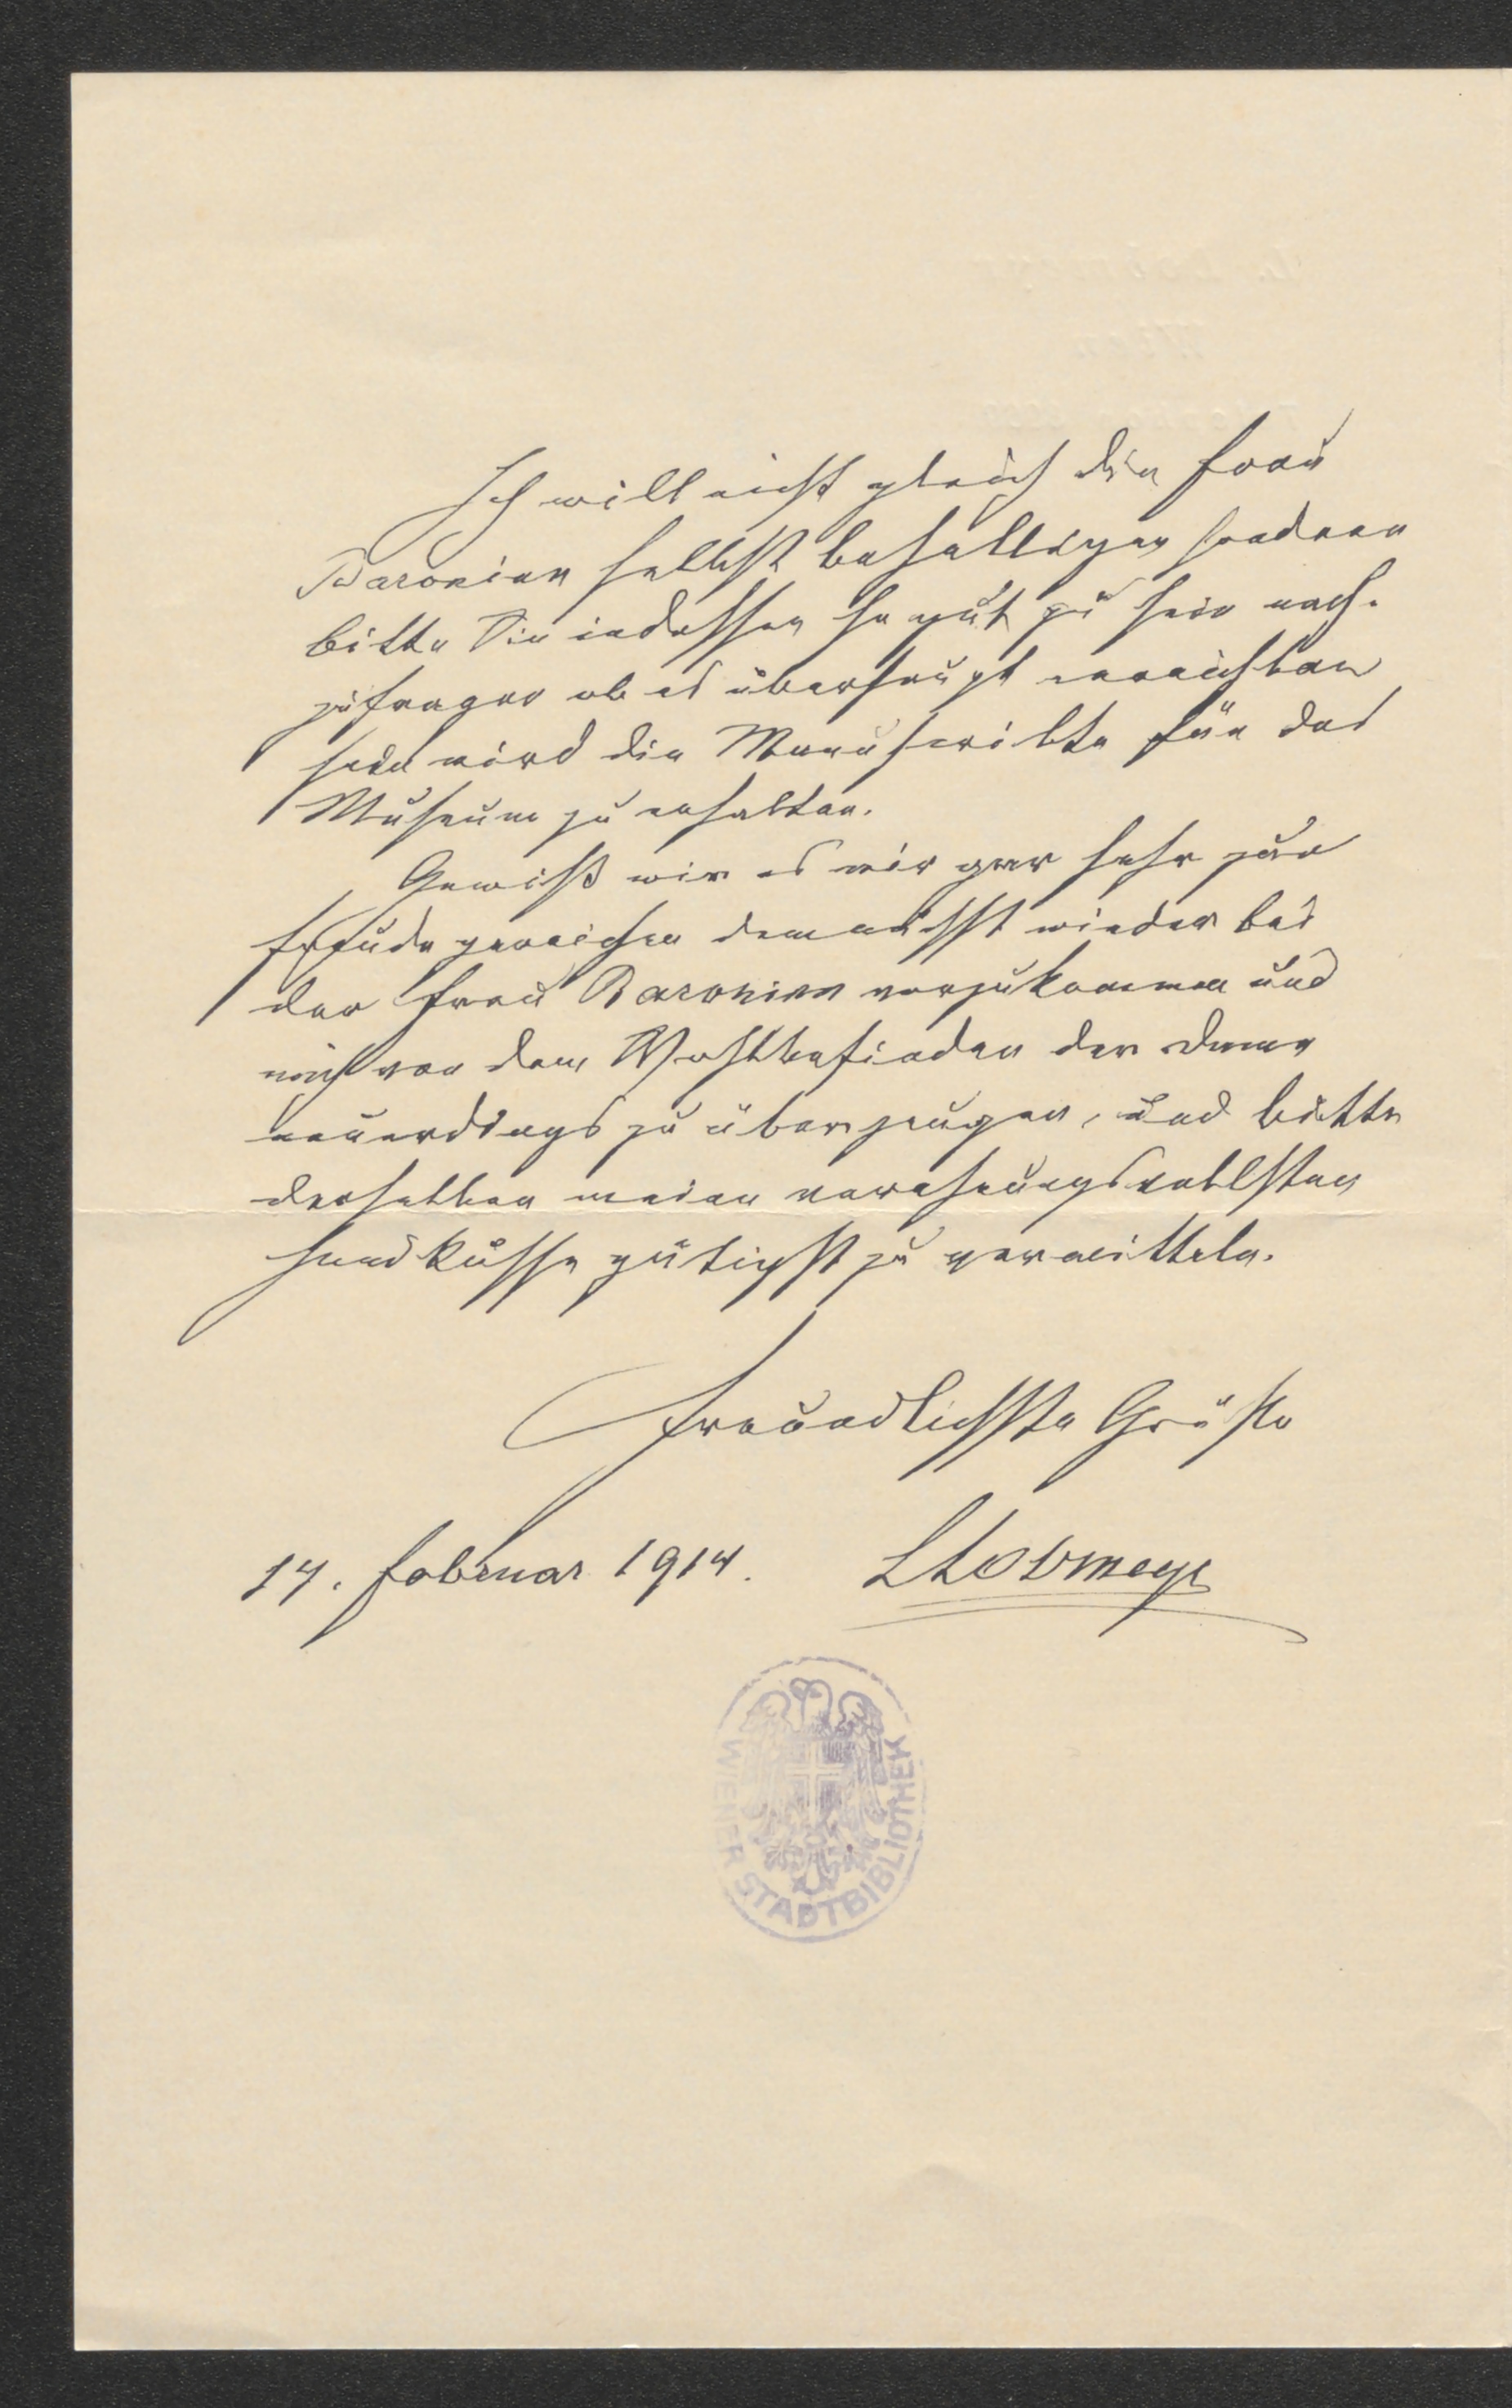 Ich will nicht gleich die Frau
Baronin selbst behelligen sondern
bitte Sie indessen so gut zu sein nach-
zufragen ob es überhaupt erreichbar
sein wird die Manuscripte für das
Museum zu erhalten.
Gewiß wird es mir gar sehr zur
Freude gereichen demnächst wieder bei
der Frau Baronin vorzukommen und
mich von dem Wohlbefinden der Dame
neuerdings zu überzeugen, und bitte
derselben meine verehrungsvollsten
Handküsse gütigst zu vermitteln.
Freundlichste Grüße
14. Februar 1914. LLobmeyr
WIENER STADTBIBLIOTHEK